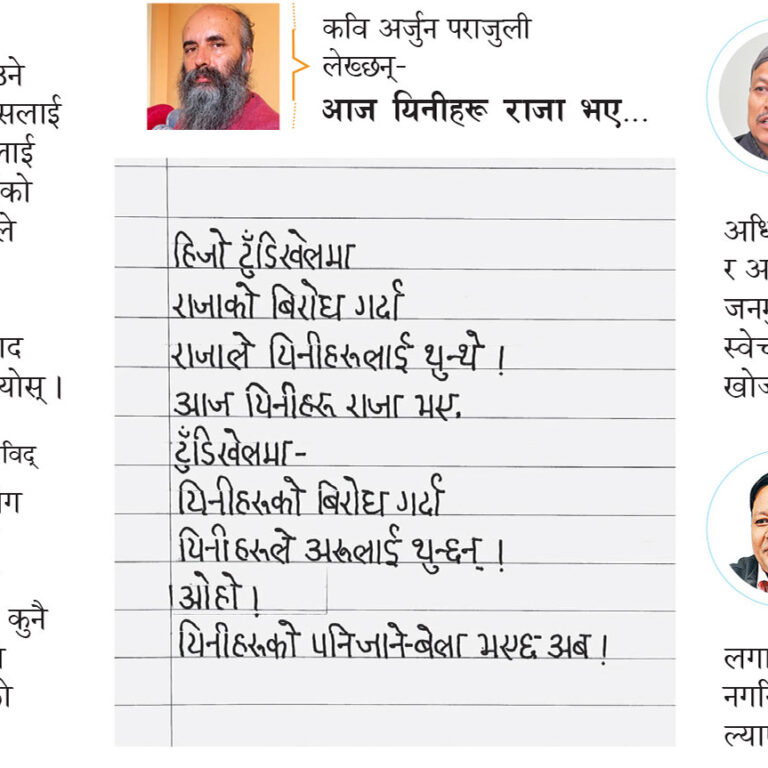 कवि अर्जुन पराजुली
लेख्छन्-
आज यिनीहरू राजा भए...
हिजो टुँडिखेलमा
राजाको बिरोध गर्दा
राजाले यिनीहरूलाई थुन्थे !
आज यिनीहरू राजा भए.
टुँडिखेलमा-
यिनीहरूको बिरोध गर्दा
यिनीहरूले अरूलाई थुन्छन् !
ओहो !
यिनीहरूको पनिजाने-बेला भएछ अब !
कुनै